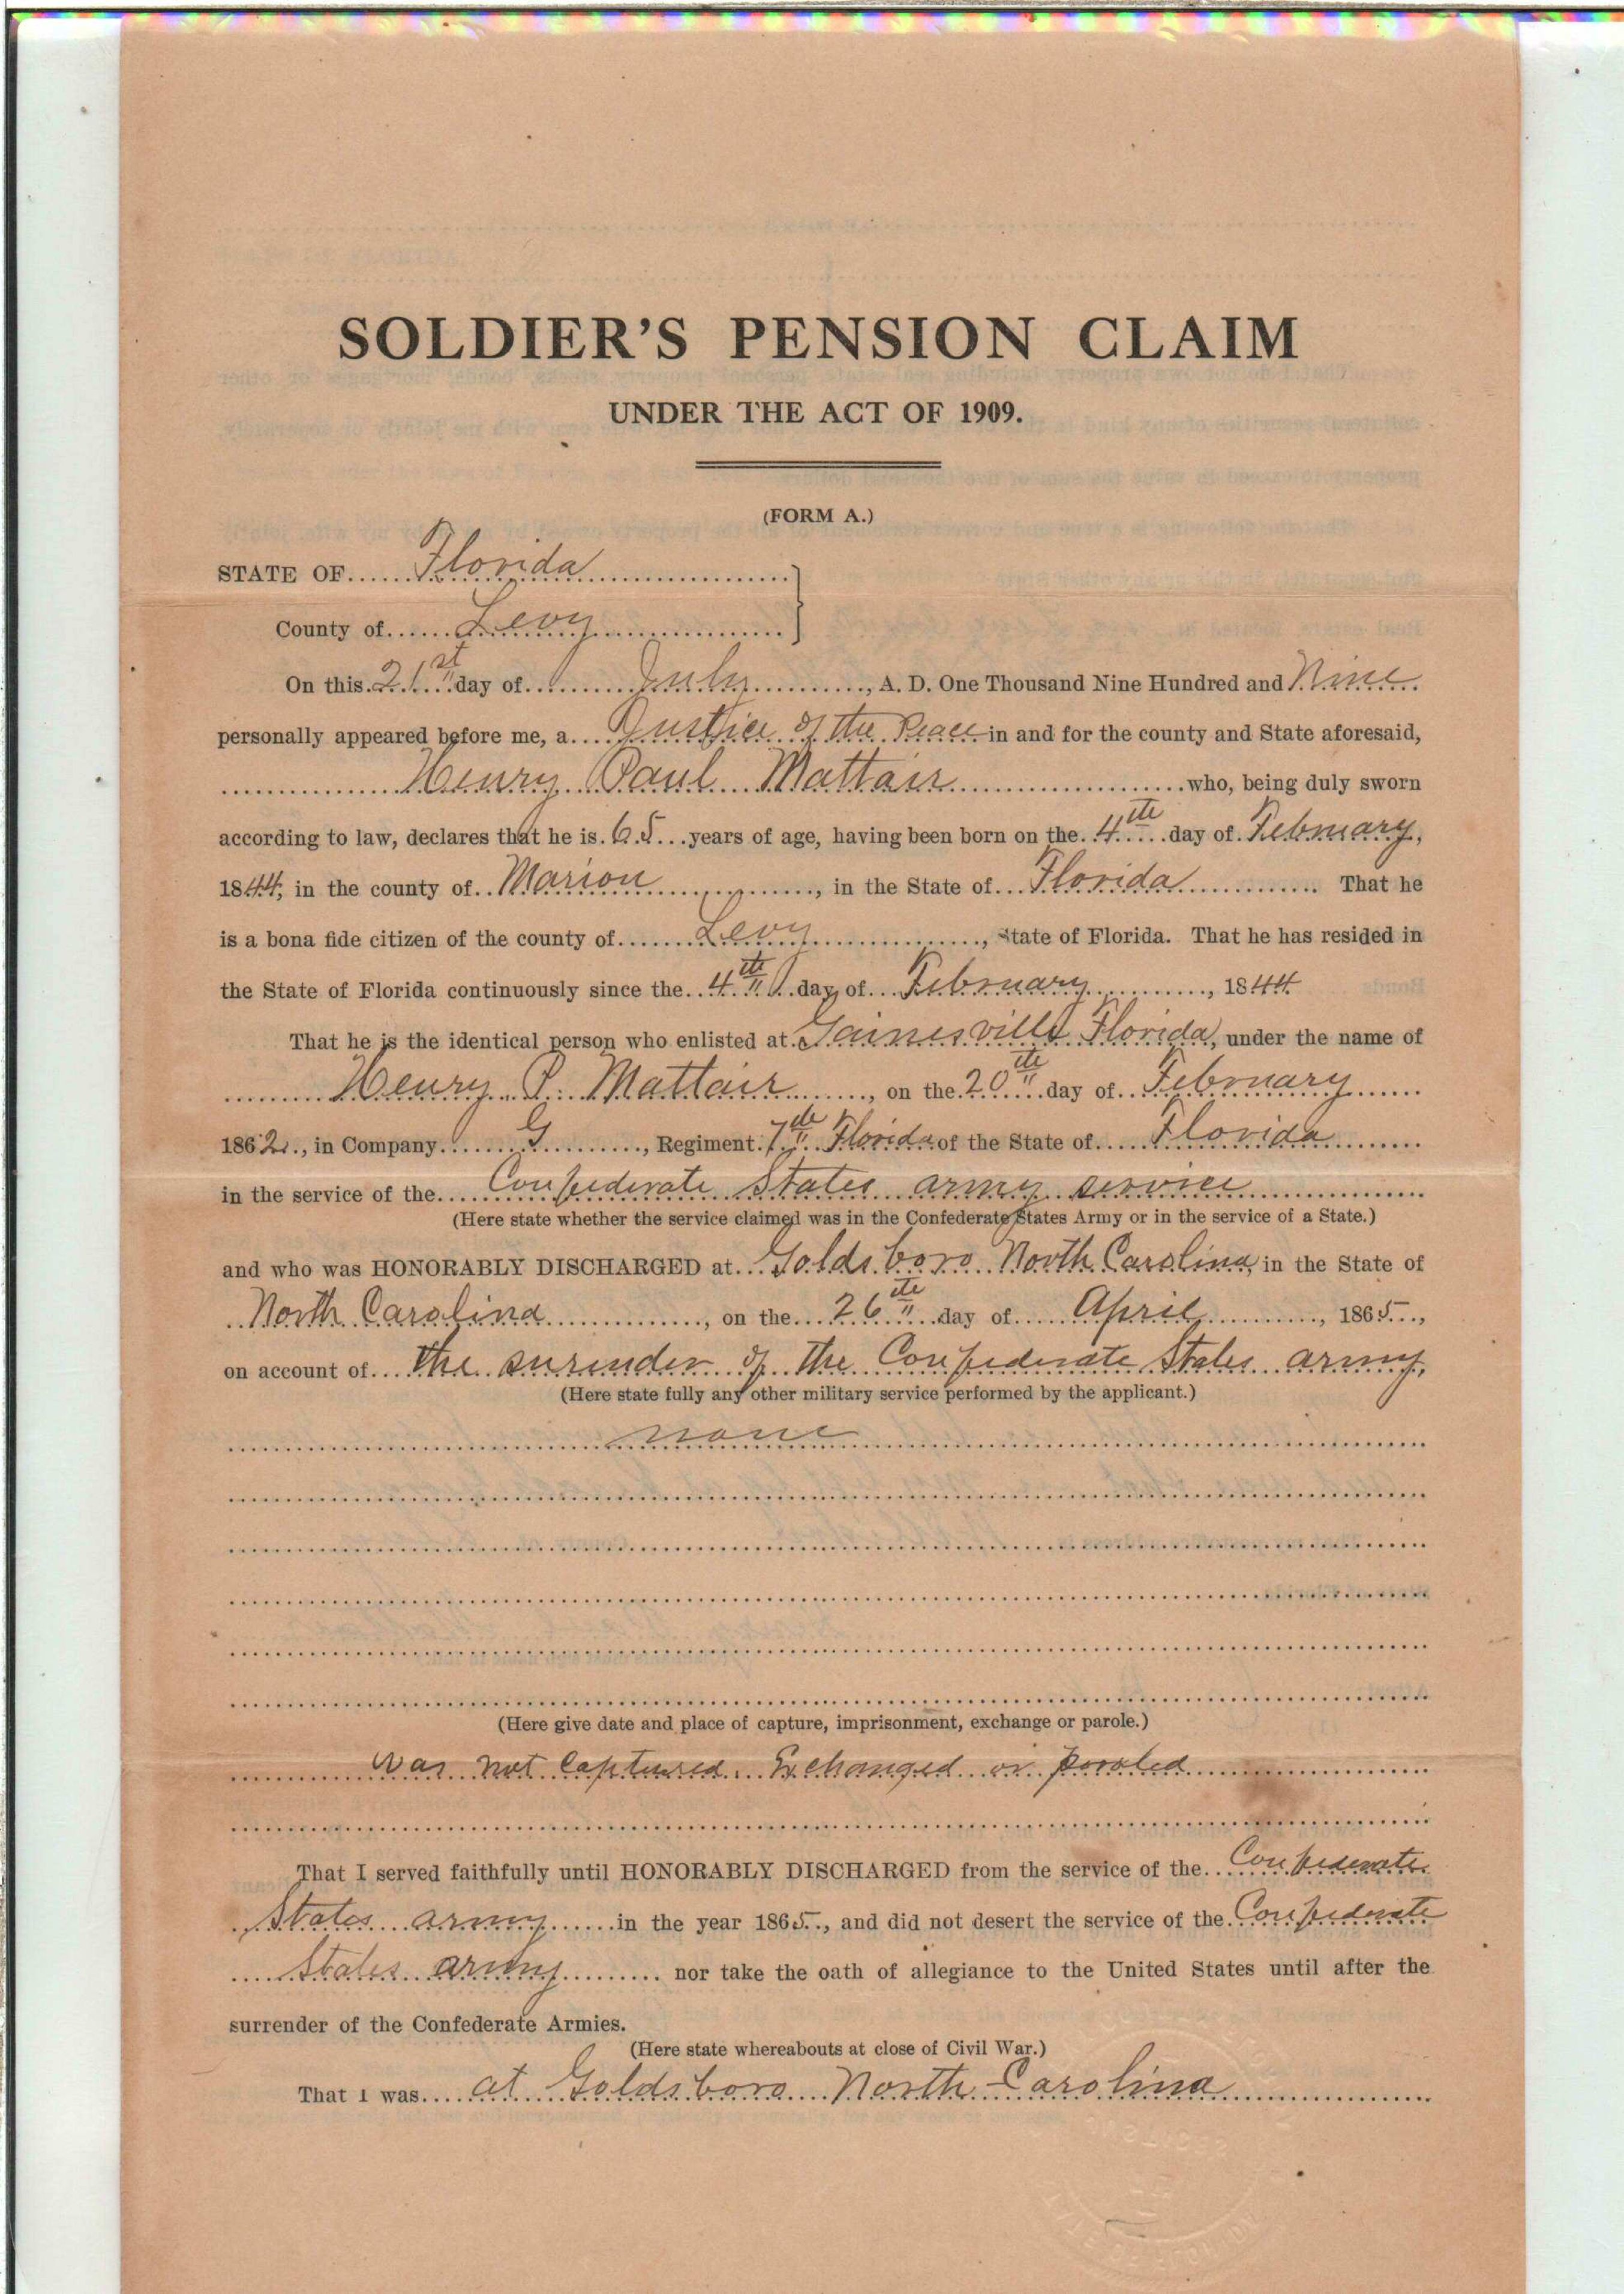 SOLDIER'S PENSION CLAIM
UNDER THE ACT OF 1909.
(FORM A.)
STATE OF Florida
County of Levy
On this 21st day of July, A. D. One Thousand Nine Hundred and Nine
personally appeared before me, a Justice of the Peace in and for the county and State aforesaid,
Henry Paul Mattair who, being duly sworn
according to law, declares that he is 65 years of age, having been born on the 4th day of February,
1844, in the county of Marion, in the State of Florida. That he
is a bona fide citizen of the county of Levy, State of Florida. That he has resided in
the State of Florida continuously since the 4th day of February, 1844
That he is the identical person who enlisted at Gainesville Florida, under the name of
Henry P. Mattair, on the 20th day of February
1862, in Company G, Regiment 7th Florida of the State of Florida
in the service of the Confederate States army service
(Here state whether the service claimed was in the Confederate States Army or in the service of a State.)
and who was HONORABLY DISCHARGED at Goldsboro North Carolina, in the State of
North Carolina, on the 26th day of April, 1865,
on account of the surender of the Confederate States army.
(Here state fully any other military service performed by the applicant.)
none
(Here give date and place of capture, imprisonment, exchange or parole.)
was not captured Exchanged or poroled
That I served faithfully until HONORABLY DISCHARGED from the service of the Confederate
States army in the year 1865, and did not desert the service of the Confederate
States army nor take the oath of allegiance to the United States until after the
surrender of the Confederate Armies.
(Here state whereabouts at close of Civil War.)
That I was at Goldsboro North Carolina